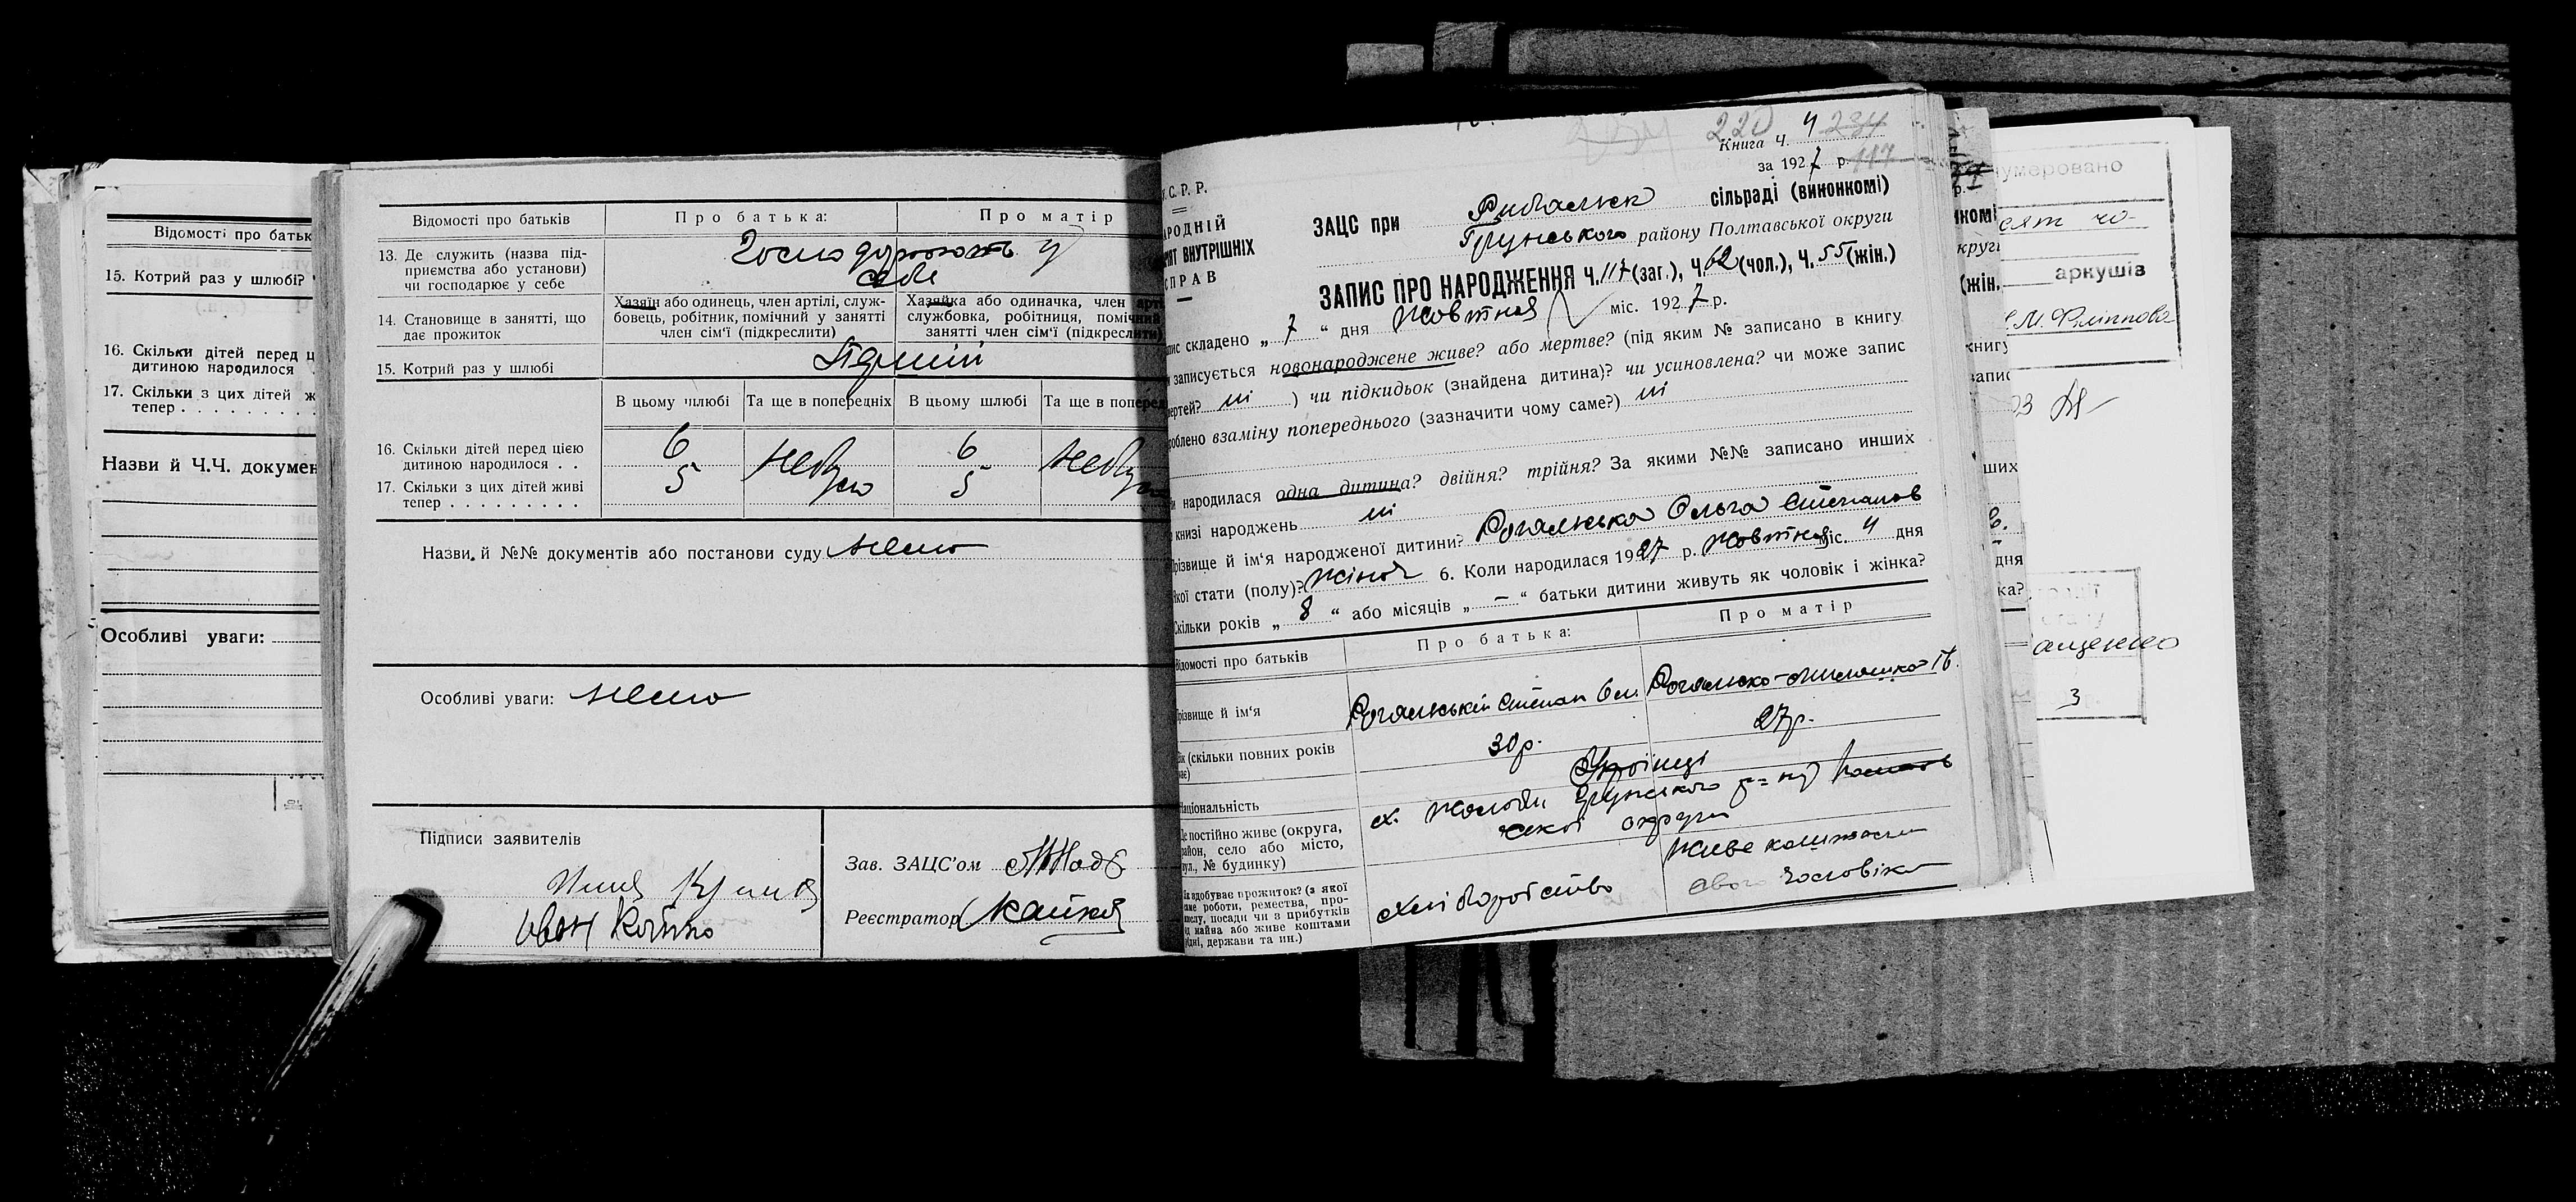 Відомості про батьк
15. Котрий раз у шлюбі?
16. Скільки дітей перед ц
дитиною народилося
17. Скільки з цих дітей ж
тепер
Назви й Ч.Ч. докумен
Особливі уваги:
Відомості про батьків
Про батька:
Про матір
13. Де служить (назва під-
приємства або установи)
чи господарює у себе
Господорюють у
себе
14. Становище в занятті, що
дає прожиток
Хазяїн або одинець, член артілі, служ-
бовець, робітник, помічний у занятті
член сім'ї (підкреслити)
Хазяйка або одиначка, член арт
службовка, робітниця, помічний
занятті член сім'ї (підкреслити)
15. Котрий раз у шлюбі
Перший
В цьому шлюбі
Та ще в попередніх
В цьому шлюбі
Та ще в попередн
16. Скільки дітей перед цією
дитиною народилося . .
6
6
17. Скільки з цих дітей живі
тепер
5
5
Назви й №№ документів або постанови суду немо
Особливі уваги: немо
Підписи заявителів
Іван Койко
Зав. ЗАЦС'ом
Реєстратор
220 4 234
Книга Ч.
за 1927 р. 117
С. Р. Р.
АРОДНІЙ
РЯТ ВНУТРІШНІХ
СПРАВ
ЗАЦС при Рибальск сільраді (виконкомі)
Грунського району Полтавської округи
ЗАПИС ПРО НАРОДЖЕННЯ Ч. 117 (заг.), Ч. 62 (чол.), Ч. 55 (жін.)
пис складено „ 7 “ дня жовтня міс. 1927 р.
записується новонароджене живе? або мертве? (під яким № записано в книгу
ертей? ні ) чи підкидьок (знайдена дитина)? чи усиновлена? чи може запис
роблено взаміну попереднього (зазначити чому саме?) ні
и народилася одна дитина? двійня? трійня? За якими №№ записано инших
книзі народжень ні
різвище й ім'я народженої дитини? Рогальська Ольга Степанов
кої стати (полу)? жіноч 6. Коли народилася 1927 р. жовтня міс. 4 дня
кільки років „ 8 “ або місяців „ – “ батьки дитини живуть як чоловік і жінка?
ідомості про батьків
Про батька:
Про матір
різвище й ім'я
Рогальській Степан
Рогальско-
ік (скільки повних років
має)
30 р.
27 р.
аціональність
Українці
е постійно живе (округа,
район, село або місто,
вул., № будинку)
х. Грунського
округи
к здобуває прожиток? (з якої
саме роботи, ремества, про-
мислу, посади чи з прибутків
від майна або живе коштами
рідні, держави та ин.)
хліборобство
живе коштами
свого чоловіка
нкомі
округи
(жін.
книгу
запис
ших
дня
ка?
нумеровано
аркушів
3